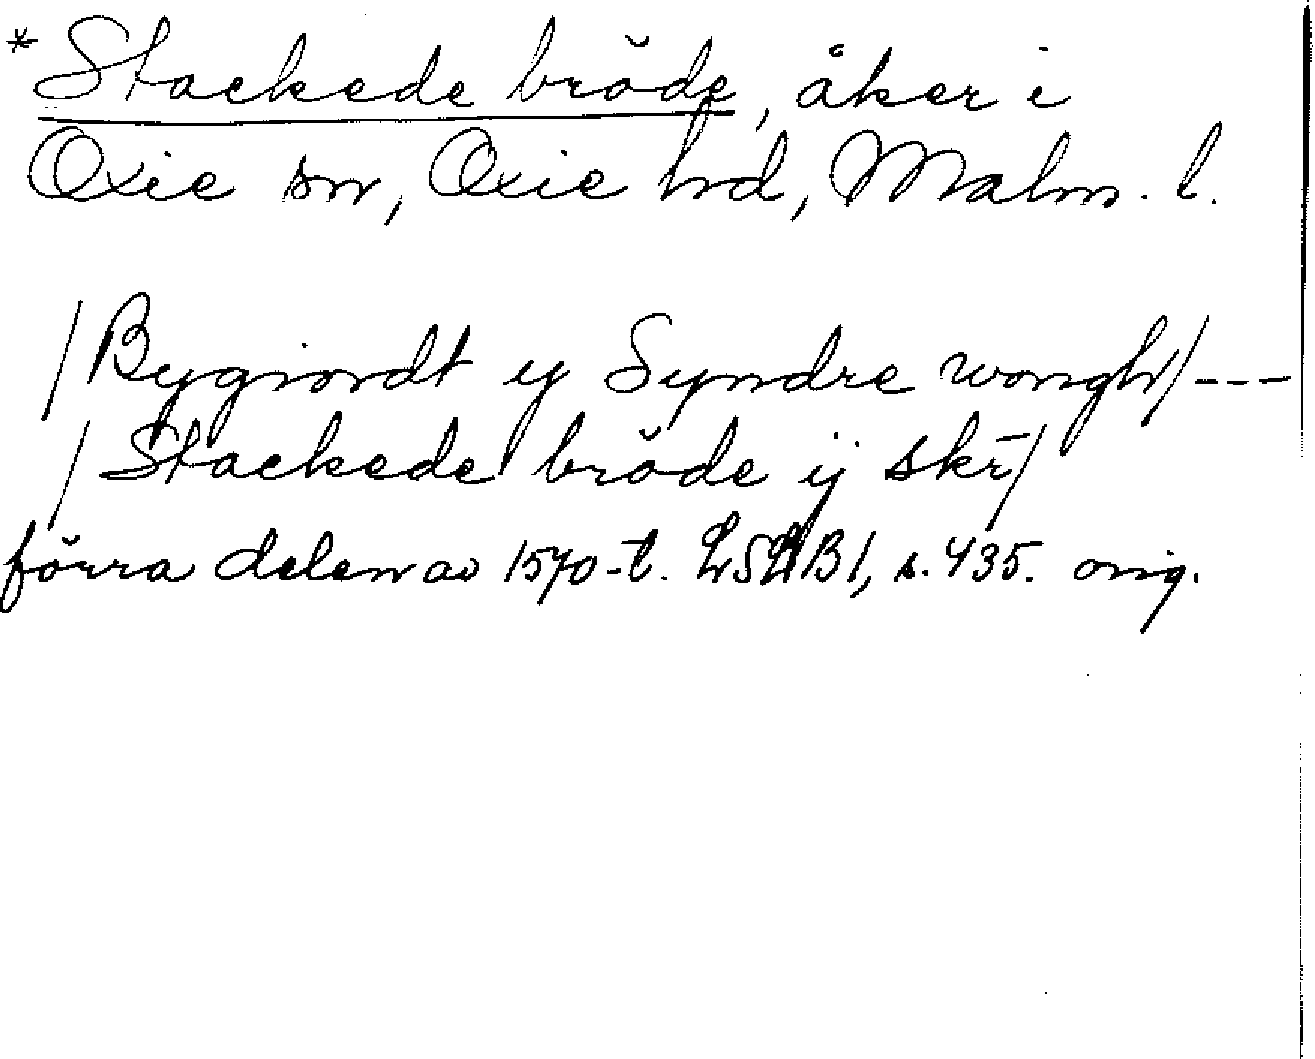 *Stackede brŏde, åker i
Oxie sn, Oxie hd, Malm. l.
/Bygiordt y Syndre wongh/---
/Stackede brŏde ij skr̄/
förra delen av 1570-t. LSLB1, s. 435. orig.